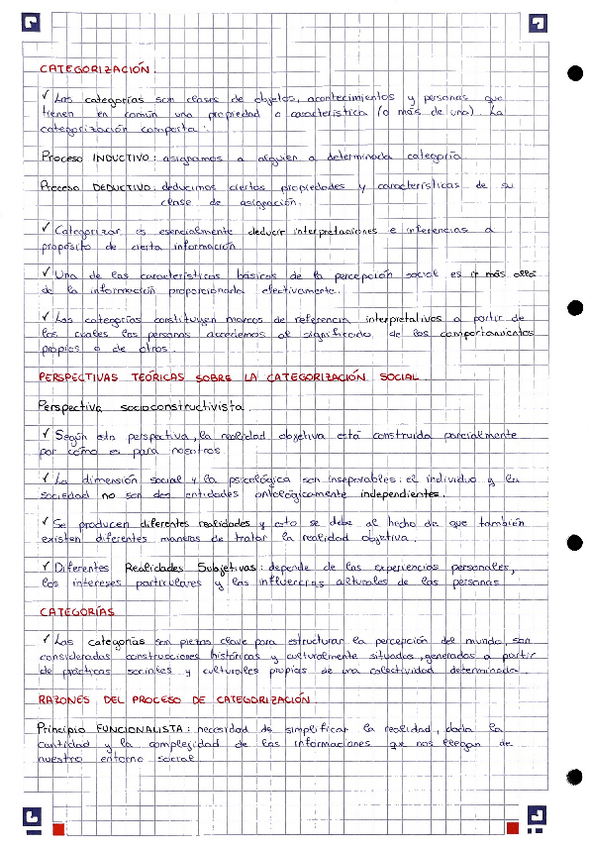 CATEGORIZACIÓN.
✓ Las categorías son clases de objetos, acontecimientos y personas que
tienen en común una propiedad o característica (o más de una). La
categorización comporta:
Proceso INDUCTIVO: asignamos a alguien a determinada categoría
Proceso DEDUCTIVO: deducimos ciertas propiedades y características de su
clase de asignación.
✓ Categorizar es esencialmente deducir interpretaciones e inferencias a
propósito de cierta información
✓ Una de las características básicas de la percepción social es ir más allá
de la información proporcionada efectivamente.
✓ Las categorías constituyen marcos de referencia interpretativos a partir de
los cuales las personas accedemos al significado de los comportamientos
propios o de otros.
PERSPECTIVAS TEÓRICAS SOBRE LA CATEGORIZACIÓN SOCIAL.
Perspectiva socioconstructivista.
✓ Según esta perspectiva, la realidad objetiva está construida parcialmente
por cómo es para nosotros
✓ La dimensión social y la psicológica son inseparables: el individuo y la
sociedad no son dos entidades ontológicamente independientes.
✓ Se producen diferentes realidades y esto se debe al hecho de que también
existen diferentes maneras de tratar la realidad objetiva.
✓ Diferentes Realidades Subjetivas: depende de las experiencias personales,
los intereses particulares y las influencias culturales de las personas
CATEGORÍAS
✓ Las categorías son piezas clave para estructurar la percepción del mundo, son
consideradas construcciones históricas y culturalmente situadas, generadas a partir
de prácticas sociales y culturales propias de una colectividad determinada.
RAZONES DEL PROCESO DE CATEGORIZACIÓN.
Principio FUNCIONALISTA: necesidad de simplificar la realidad, dada la
cantidad y la complejidad de las informaciones que nos llegan de
nuestro entorno social